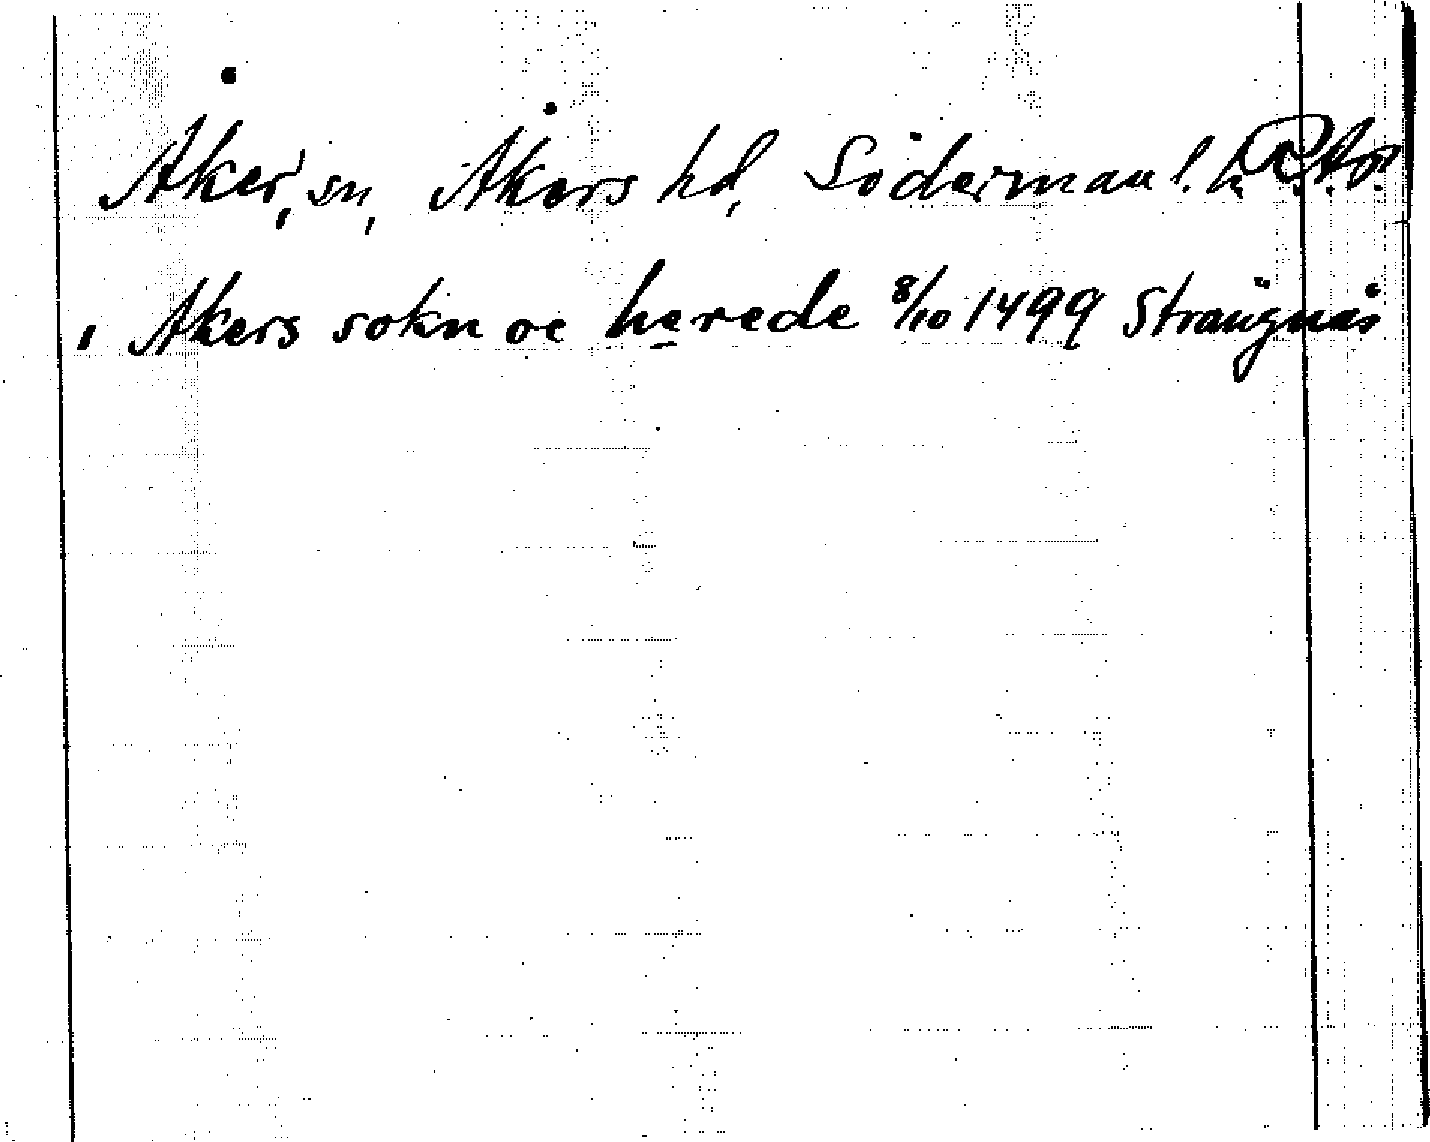 Åker, sn, Åkers hd, Söderman l.
i Akers sokn oc herede 8/10 1499 Strängnäs